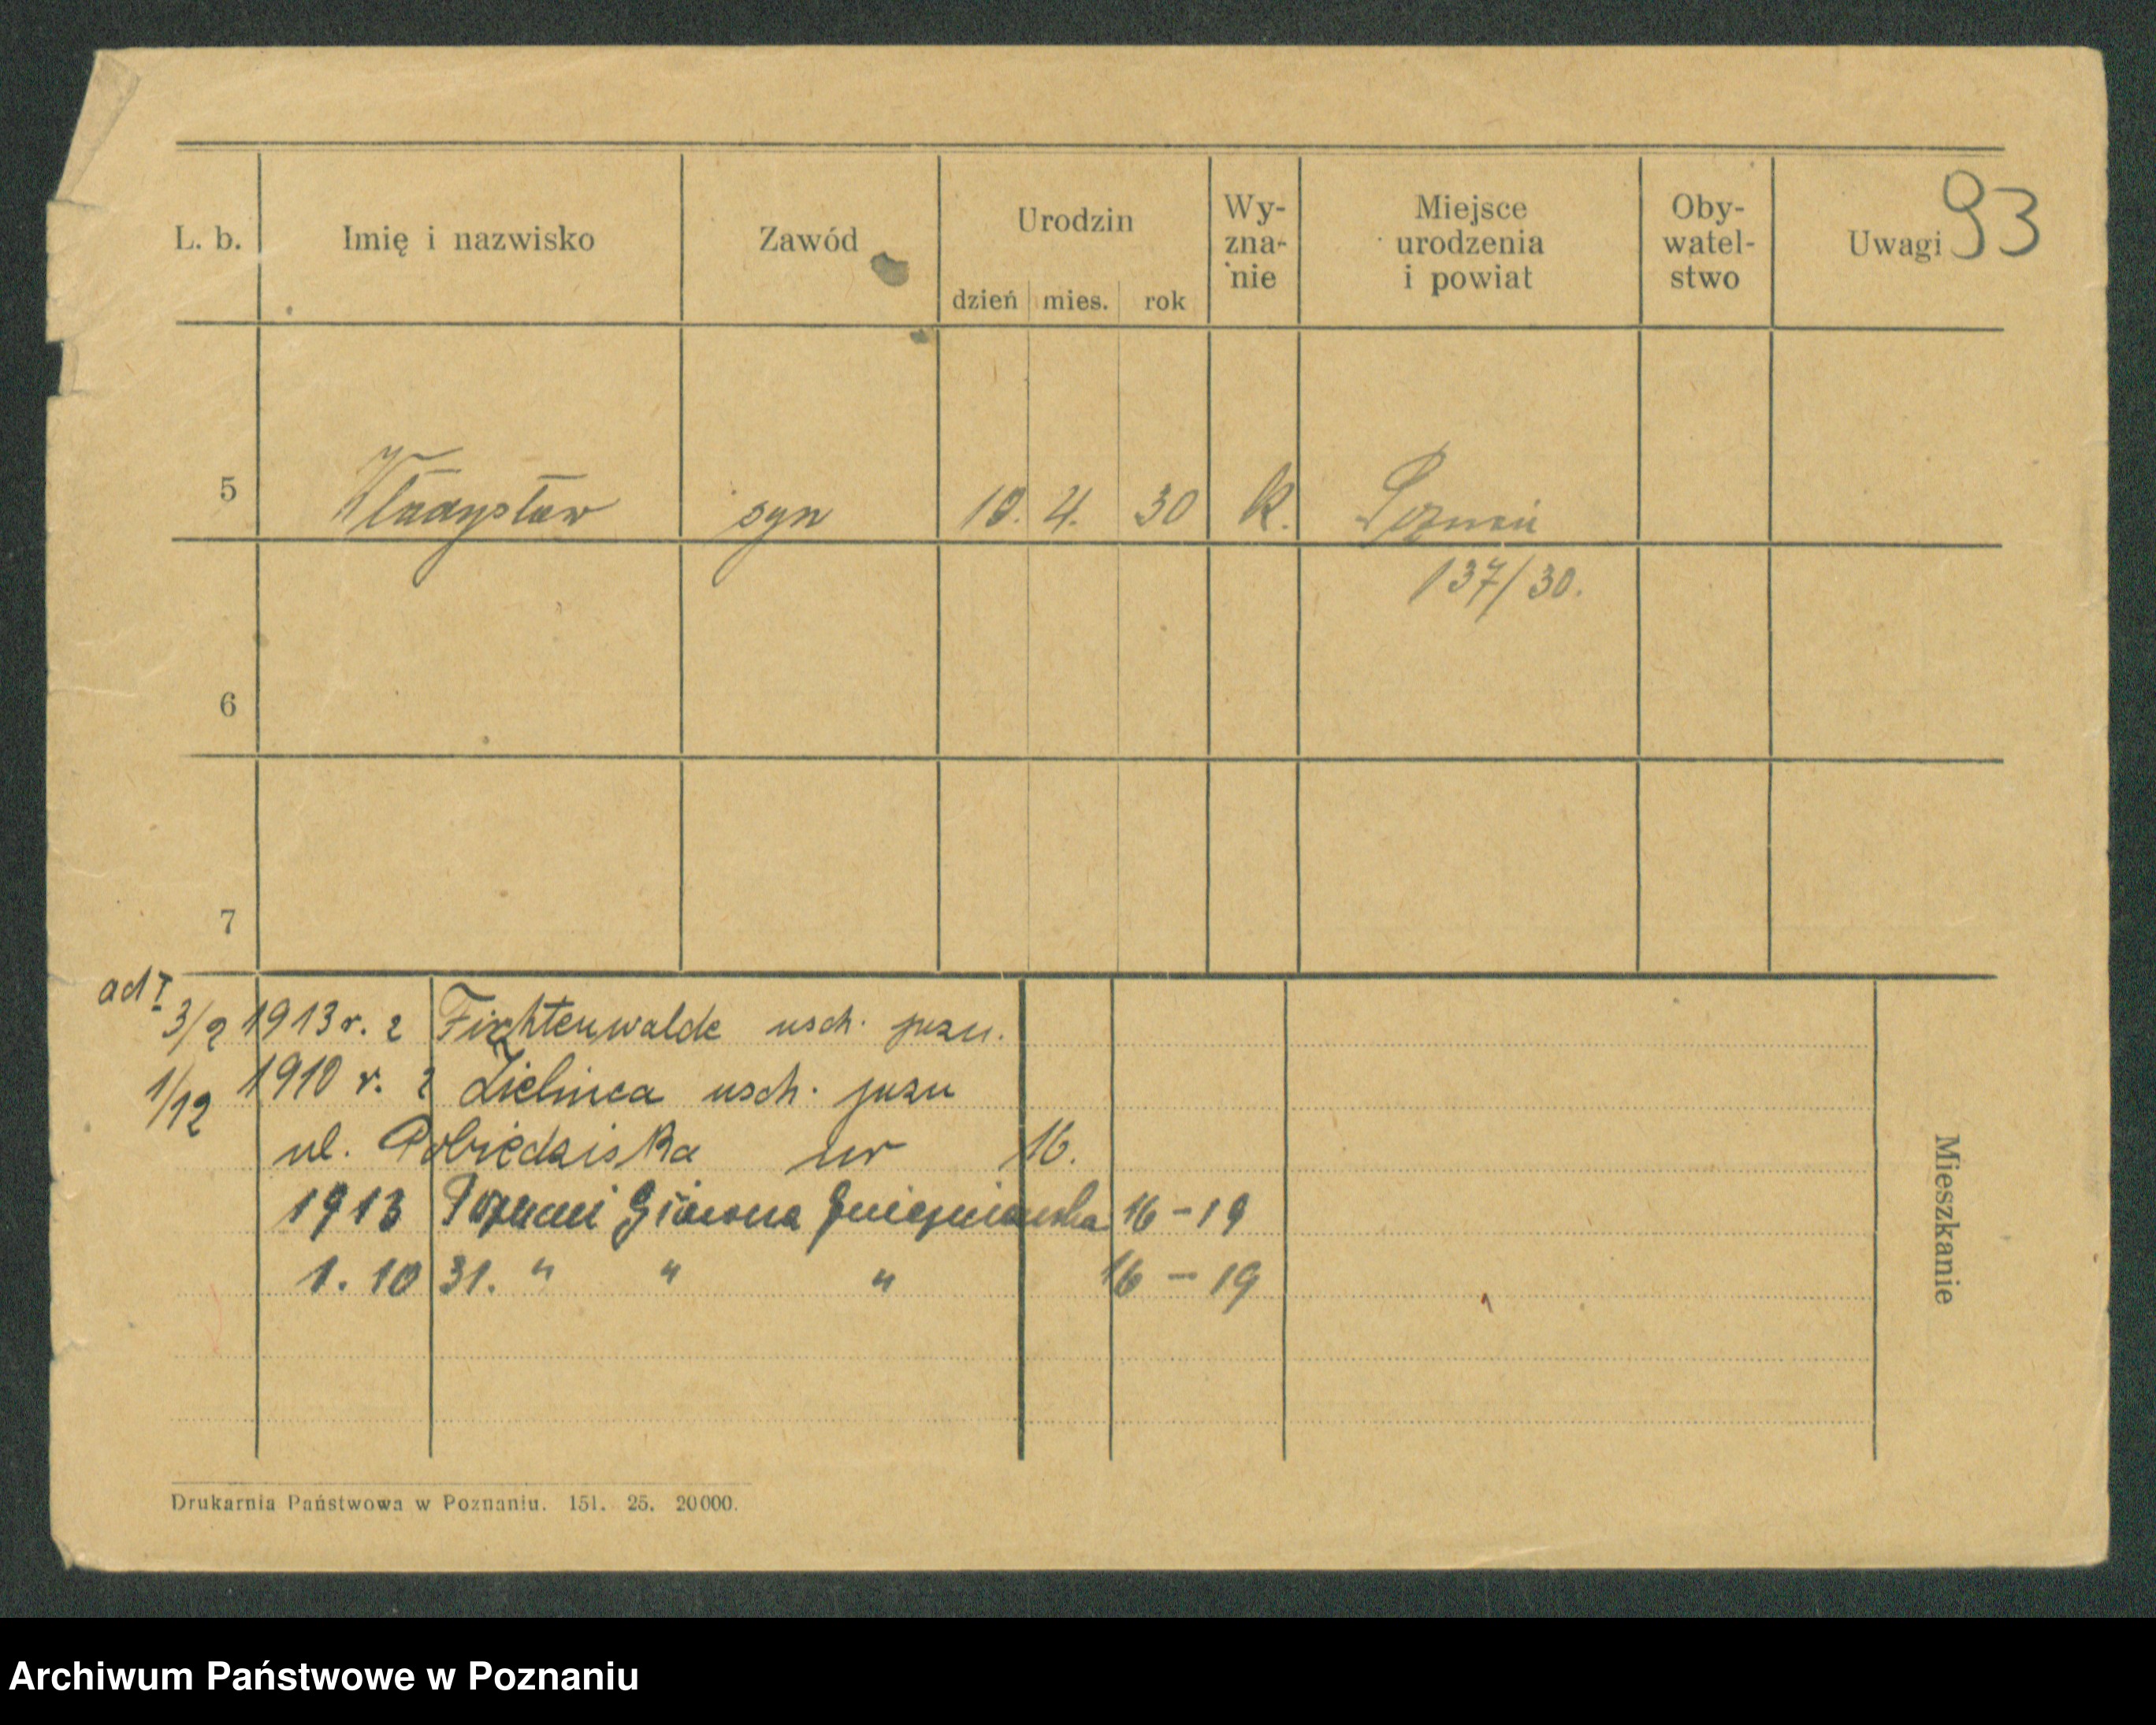 93
L. b. Imię i nazwisko Zawód Urodzin Wy- Miejsce Oby- Uwagi
zna- urodzenia watel-
nie i powiat stwo
dzień mies. rok
5 Władysław syn 10. 4. 30 k. Poznań
137/30.
6
7
ad I
3/2 1913 r. z Fichtenwalde wsch. pozn.
1/12 1910 r. z Zielnica wsch. pozn
ul. Pobiedziska nr 16.
1913 Poznań Główna Gnieźnieńska 16 - 19
1. 10 31. " " " 16 - 19
Mieszkanie
Drukarnia Państwowa w Poznaniu. 151. 25. 20000.
Archiwum Państwowe w Poznaniu